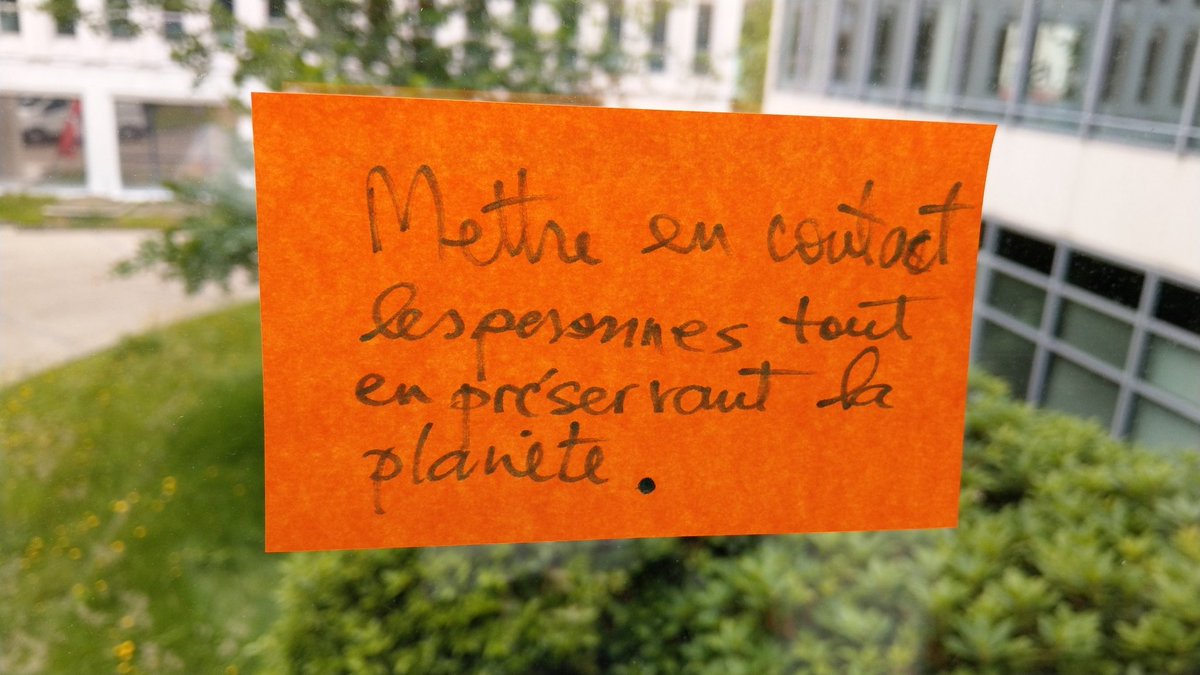 Mettre en contact
les personnes tout
en préservant la
planète.